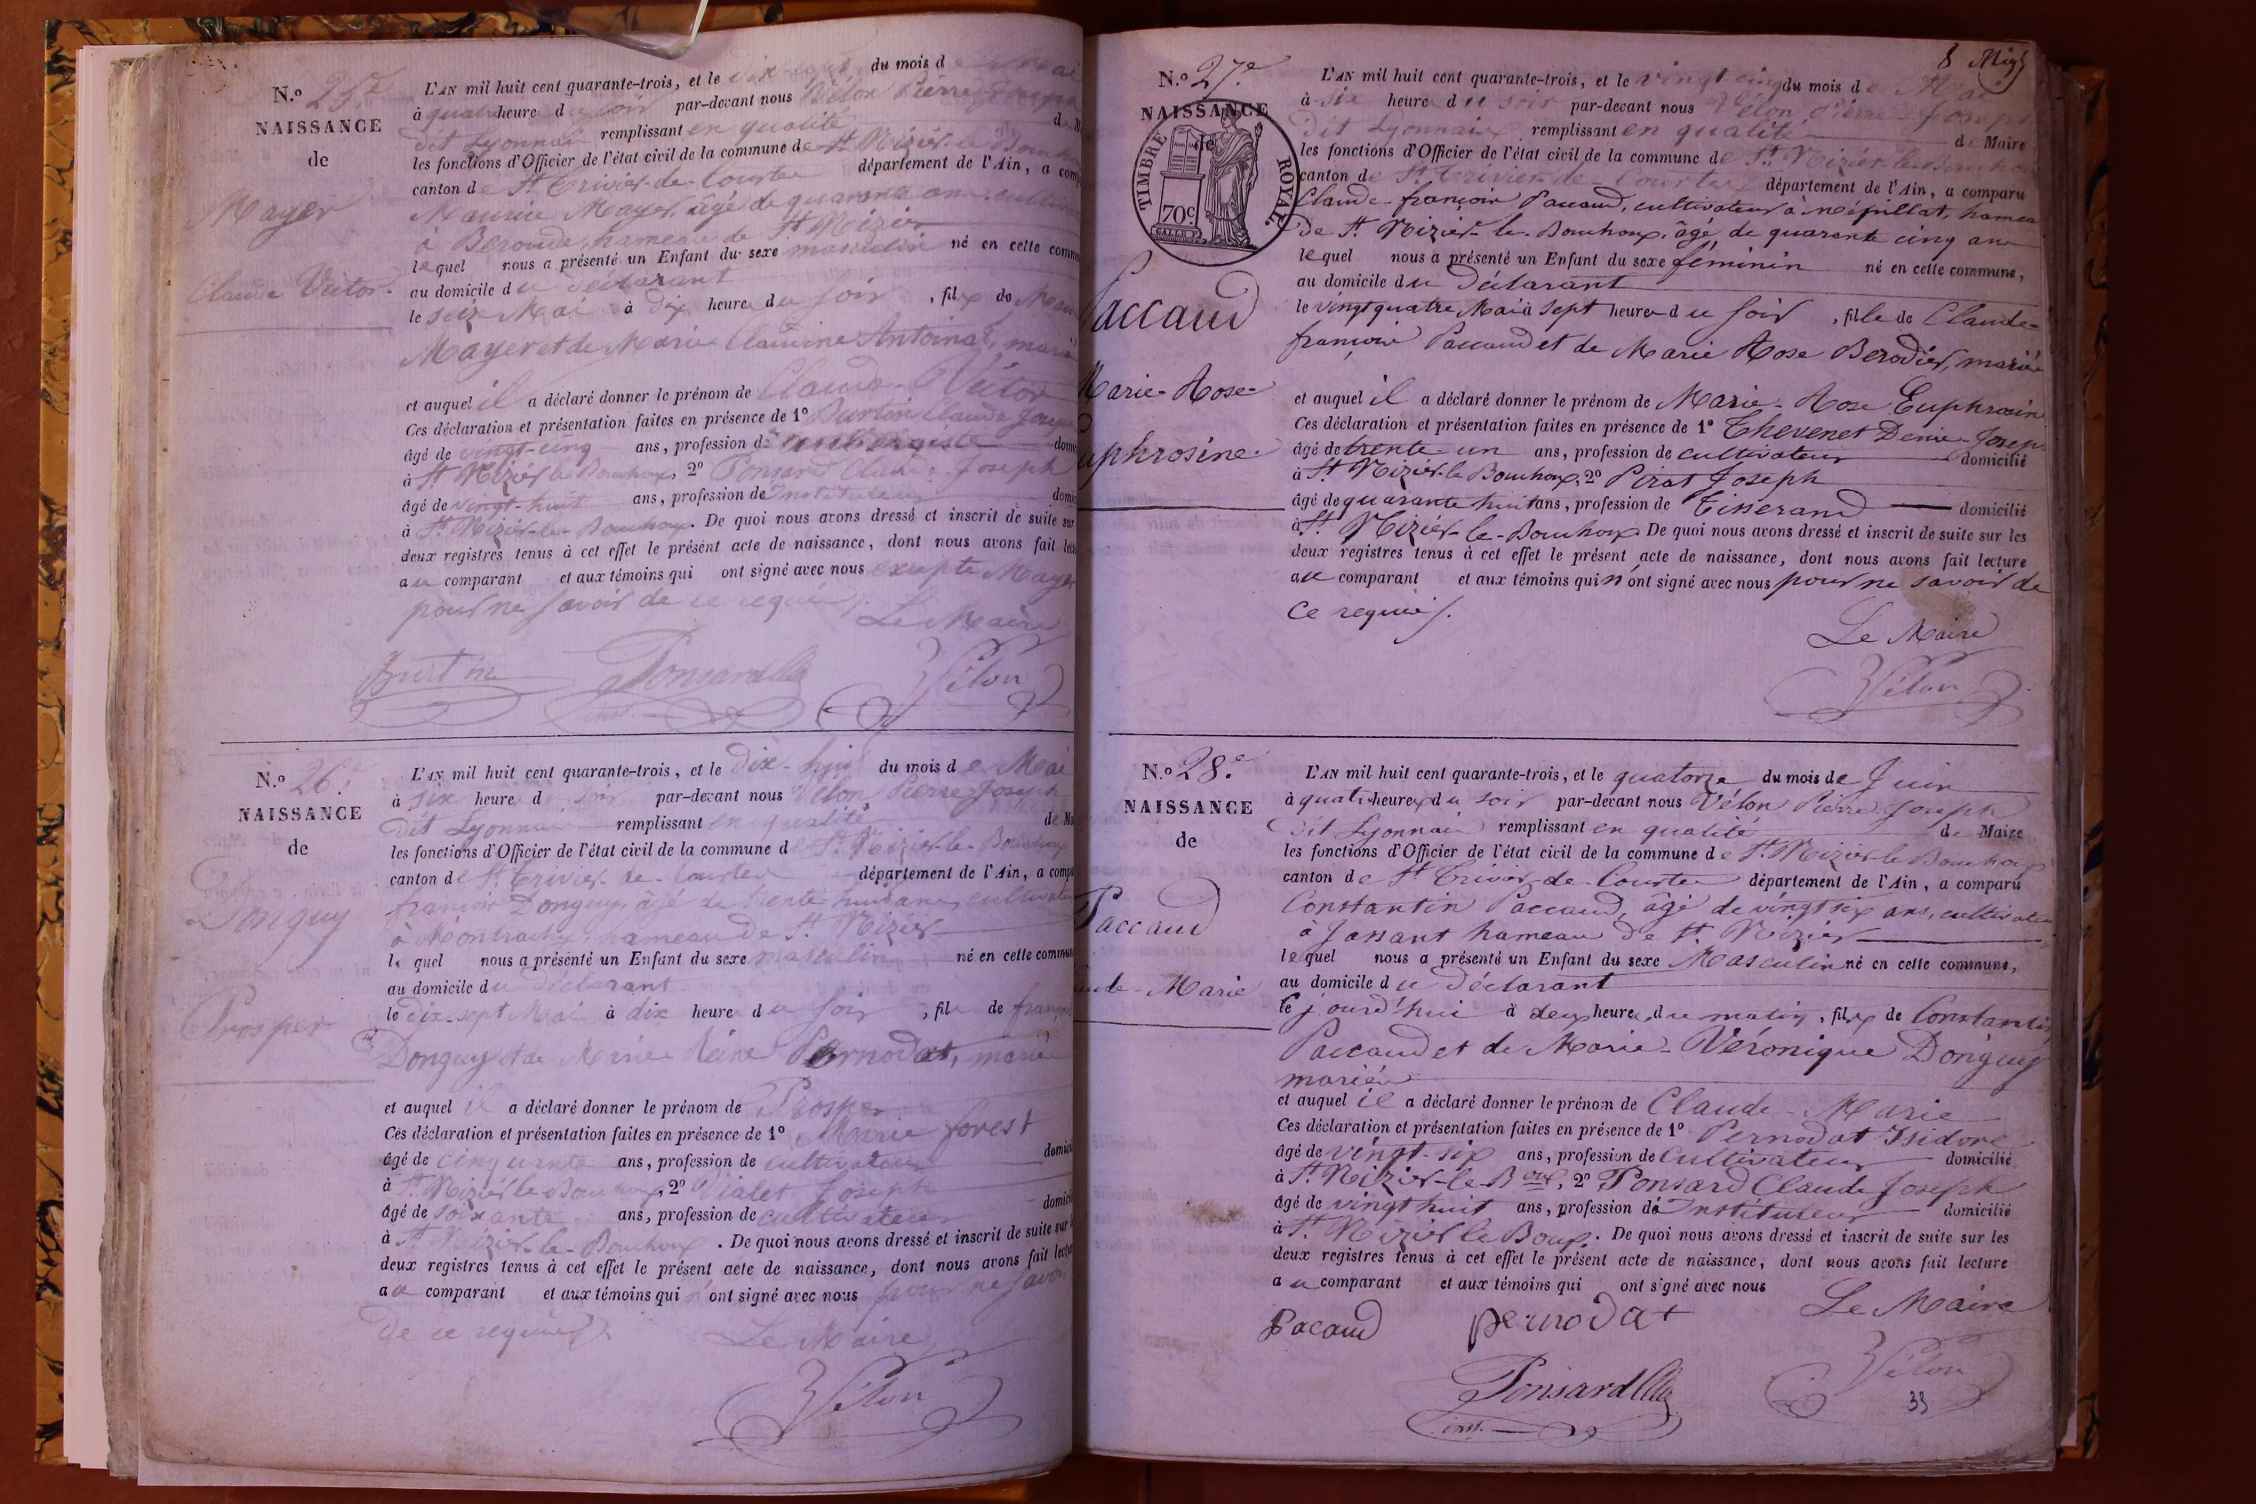 N.o 25.e
NAISSANCE
de
Mayer
Claude Victor.
L'AN mil huit cent quarante-trois, et le du mois de Mai
à quatre heure du soir par-devant nous Vélon Pierre Joseph
dit Lyonnais remplissant en qualité d
les fonctions d'Officier de l'état civil de la commune de St. Nizier-le-Bouchoux
canton de St. Trivier-de-Courtes département de l'Ain, a comp
Maurice Mayer, âgé de quarante ans, cultivateur
à Beroude, hameau de St. Nizier
lequel nous a présenté un Enfant du sexe masculin né en cette commun
au domicile du déclarant
le seize Mai à dix heure du soir, fils de Mau
Mayer et de Marie Claudine Antoinat, mari
et auquel il a déclaré donner le prénom de Claude-Victor
Ces déclaration et présentation faites en présence de 1o Claude Josep
âgé de vingt-cinq ans, profession d'aubergiste domi
à St. Nizier le Bouchoux, 2o Ponsard Claude Joseph
âgé de vingt-huit ans, profession de Instituteur domi
à St. Nizier-le-Bouchoux. De quoi nous avons dressé et inscrit de suite sur
deux registres tenus à cet effet le présent acte de naissance, dont nous avons fait lect
au comparant et aux témoins qui ont signé avec nous excepté Mayer
pour ne savoir de ce requis.
Le Maire
Ponsard Cde Vélon
inst.
N.o 26.e
NAISSANCE
de
Donguy
Prosper
L'AN mil huit cent quarante-trois, et le dix-huit du mois de Mai
à six heure d soir par-devant nous Vélon Pierre Joseph
dit Lyonnais remplissant en qualité de Ma
les fonctions d'Officier de l'état civil de la commune de St. Nizier-le-Bouchoux
canton de St. Trivier-de-Courtes département de l'Ain, a comp
françois Donguy, âgé de trente huit ans, cultivateur
à Montrachy, hameau de St. Nizier
lequel nous a présenté un Enfant du sexe masculin né en cette commun
au domicile du déclarant
le dix-sept Mai à dix heure du soir, fils de françois
Donguy et de Marie Reine Pernodat, mariés
et auquel il a déclaré donner le prénom de Prosper
Ces déclaration et présentation faites en présence de 1o Marie forest
âgé de cinquante ans, profession de cultivateur domici
à St. Nizier le Bouchoux, 2o Vialet Joseph
âgé de soixante ans, profession de cultivateur domici
à St. Nizier-le-Bouchoux. De quoi nous avons dressé et inscrit de suite sur
deux registres tenus à cet effet le présent acte de naissance, dont nous avons fait lectu
au comparant et aux témoins qui n'ont signé avec nous pour ne savoir
de ce requis.
Le Maire
Vélon
8
N.o 27.e
NAISSANCE
de
TIMBRE ROYAL
70c
Paccaud
Marie-Rose-
uphrosine.
L'AN mil huit cent quarante-trois, et le vingt cinq du mois de Mai
à six heure du soir par-devant nous Vélon Pierre-Joseph
dit Lyonnais remplissant en qualité de Maire
les fonctions d'Officier de l'état civil de la commune de St. Nizier-le-Bouchoux
canton de St. Trivier-de-Courtes département de l'Ain, a comparu
Claude-françois Paccaud, cultivateur à népillat, hameau
de St. Nizier-le-Bouchoux, âgé de quarante cinq ans
lequel nous a présenté un Enfant du sexe féminin né en cette commune,
au domicile du déclarant
le vingt quatre Mai à sept heure du soir, fille de Claude-
françois Paccaud et de Marie Rose Berodier, mariés
et auquel il a déclaré donner le prénom de Marie-Rose Euphrosine
Ces déclaration et présentation faites en présence de 1o Thevenet Denis-Joseph
âgé de trente un ans, profession de cultivateur domicilié
à St. Nizier-le Bouchoux, 2o Pirat Joseph
âgé de quarante huit ans, profession de Tisserand domicilié
à St. Nizier-le-Bouchoux De quoi nous avons dressé et inscrit de suite sur les
deux registres tenus à cet effet le présent acte de naissance, dont nous avons fait lecture
au comparant et aux témoins qui n'ont signé avec nous pour ne savoir de
ce requis.
Le Maire
Vélon
N.o 28.e
NAISSANCE
de
Paccaud
ude-Marie
L'AN mil huit cent quarante-trois, et le quatorze du mois de Juin
à quatre heures du soir par-devant nous Vélon Pierre Joseph
dit Lyonnais remplissant en qualité de Maire
les fonctions d'Officier de l'état civil de la commune de St. Nizier-le Bouchoux
canton de St. Trivier-de-Courtes département de l'Ain, a comparu
Constantin Paccaud, âgé de vingt six ans, cultivateur
à Jassant hameau de St. Nizier
lequel nous a présenté un Enfant du sexe Masculin né en cette commune,
au domicile du déclarant
le jourd'hui à deux heure du matin, fils de Constantin
Paccaud et de Marie-Véronique Donguy
mariés
et auquel il a déclaré donner le prénom de Claude-Marie
Ces déclaration et présentation faites en présence de 1o Pernodat Isidore
âgé de vingt-six ans, profession de cultivateur domicilié
à St. Nizier-le-Boux, 2o Ponsard Claude Joseph
âgé de vingt huit ans, profession d'Instituteur domicilié
à St. Nizier le Boux. De quoi nous avons dressé et inscrit de suite sur les
deux registres tenus à cet effet le présent acte de naissance, dont nous avons fait lecture
au comparant et aux témoins qui ont signé avec nous
Le Maire
Pacaud pernodat
Vélon
Ponsard Cde
inst.
33